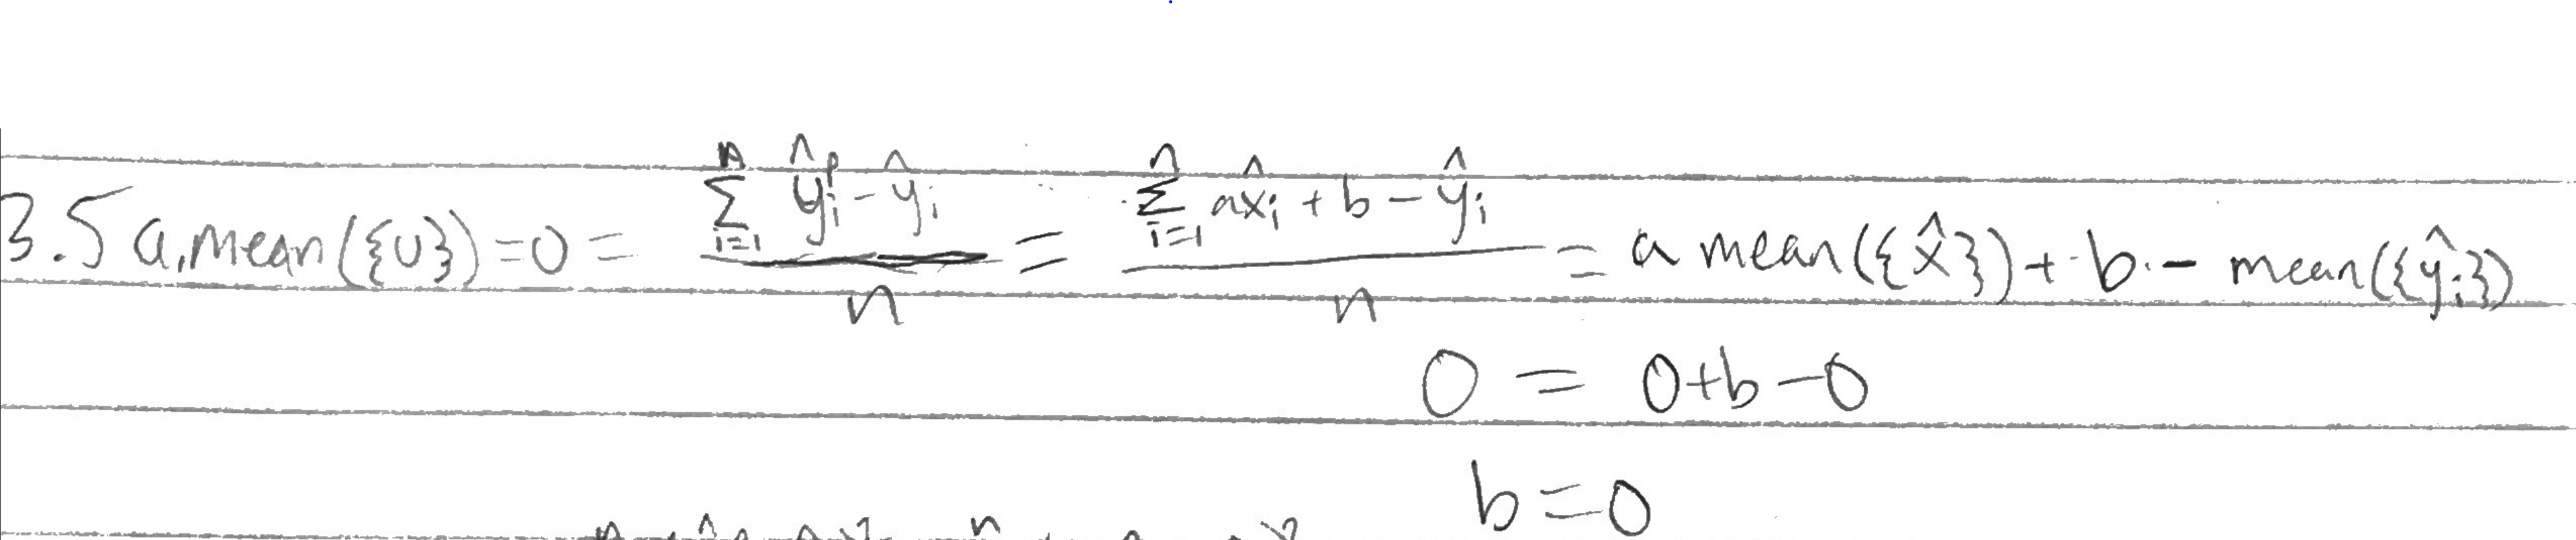 3.5 a. mean({u}) = 0 = \frac{\sum_{i=1}^{n} \hat{y}_i^p - \hat{y}_i}{n} = \frac{\sum_{i=1}^{n} a\hat{x}_i + b - \hat{y}_i}{n} = a mean({\hat{x}}) + b - mean({\hat{y}_i})
0 = 0+b-0
b=0